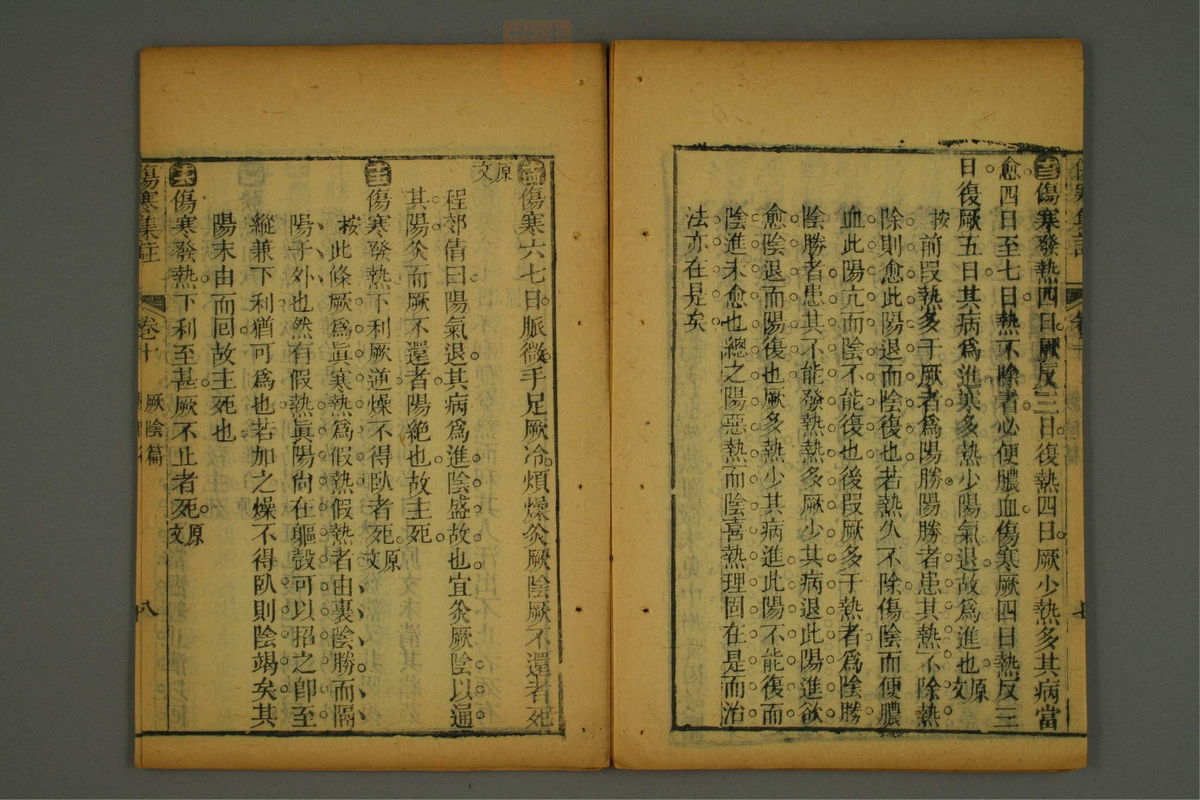 傷寒發熱四日厥反三日復熱四日厥少熱多其病當
愈四日至七日熱不除者必便膿血傷寒厥四日熱反三
日復厥五日其病爲進寒多熱少陽氣退故爲進也原文
按前叚熱多于厥者爲陽勝陽勝者患其熱不除熱
除則愈此陽退而陰復也若熱久不除傷陰而便膿
血此陽亢而陰不能復也後叚厥多于熱者爲陰勝
陰勝者患其不能發熱熱多厥少其病退此陽進欲
愈陰退而陽復也厥多熱少其病進此陽不能復而
陰進未愈也總之陽惡熱而陰喜熱理固在是而治
法亦在是矣
傷寒六七日脈微手足厥冷煩燥灸厥陰厥不還者死
原文
程郊倩曰陽氣退其病爲進陰盛故也宜灸厥陰以通
其陽灸而厥不還者陽絶也故主死
傷寒發熱下利厥逆燥不得臥者死原文
按此條厥爲眞寒熱爲假熱假熱者由裏陰勝而隔
陽于外也然有假熱眞陽尙在軀殼可以招之卽至
縱兼下利猶可爲也若加之燥不得臥則陰竭矣其
陽末由而回故主死也
傷寒發熱下利至甚厥不止者死原文
傷寒集註 卷十 厥陰篇 八